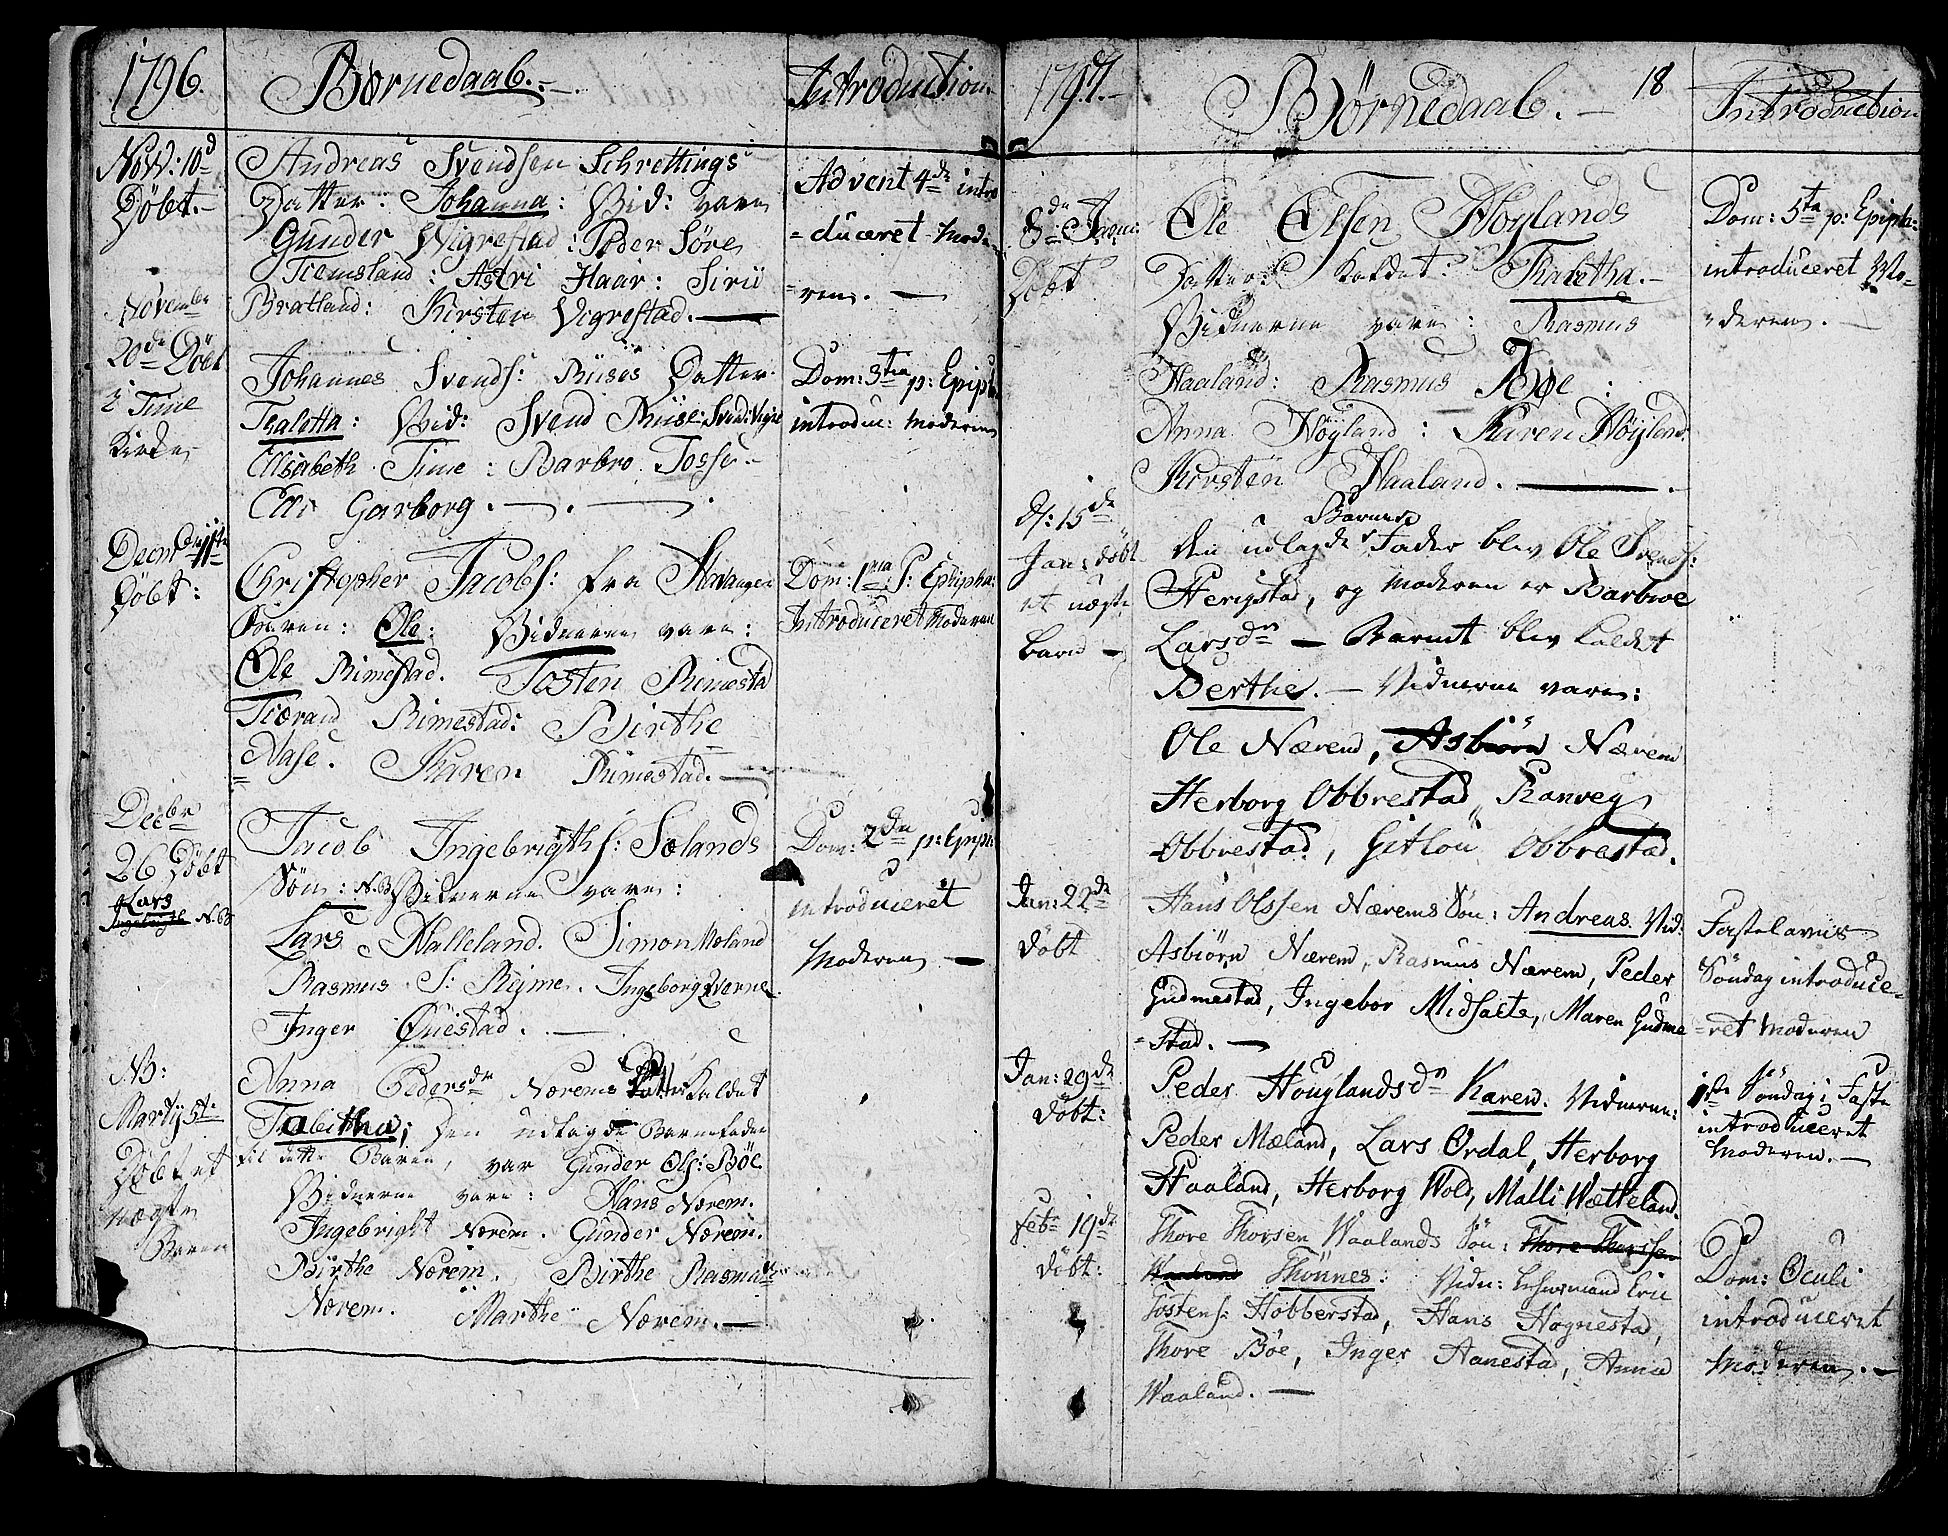 1796.
Børnedaab.-
Introduction
Nov: 10d
Döbt.-
Andreas Svendsen Schrettings
Datter: Johanna: Vid: vare
Gunder Vigrestad: Peder Söre
Tiemsland: Astri Haar: Sirii
Bratland: Kirsten Vigrestad.
Advent 4de intro
=duceret Mode-
=ren.
Novembr
20de Döbt
i Time
Kirke
Johannes Svends: Riises Datter
Taletta: Vid: Svend Riise: Svend: Vigre
Elisabeth Time: Barbro Tosse.-
Elli Garborg.
Dom: 3tia p: Epiph
introdu: moderen
Decm 11te
Döbt:
Christopher Jacobs: fra Stavanger
Baren: Ole: Vidnerne vare:
Ole Rimestad. Tosten Rimestad
Tiærand Rimestad: Birthe
Nase. Karen Rimestad.-
Dom: 1ma: P: Epipha:
Introduceret Moderen
Decbr
26 Döbt
Lars
N.B
Jacob Ingebrigths: Sælands
Søn: N.B Vidnerne vare:
Lars Halleland. Simon Mæland
Rasmus S: Rejme. Ingeborg Qverne
Inger Qviestad.
Dom: 2da p: Epip:
introduceret
Moderen
NB:
Martÿ 5te
Döbt et
uægte
Baren
Anna Pedersdr Nærems Datter kaldet
Tabitha; Den udlagde Barnefader
til dette Baren, var Gunder Ols: Böe
Vidnerne vare: Hans Nærem.
Ingebright Nærem. Gunder Nærem.
Birthe Nærem. Birthe Rasmusdr
Nærem. Marthe Nærem.
1797.-
Børnedaab.-
18
Introduction
8de Janu:
Döbt
Ole Elsen Höylands
Datter kaldet: Thaletha.-
Vidnerne vare: Rasmus
Haaland: Rasmus Böe:
Anna Höyland: Karen Höyland
Kirsten Haaland.
Dom: 5ta p: Epipha:
introduceret Mo-
=deren.
d: 15de
Jan: döbt
et uægte
barn
Den udlagde Barnets Fader blev Ole Svends:
Herigstad, og Moderen er Barbroe
Larsdr - Barnet blev kaldet
Berthe. - Vidnerne vare:
Ole Nærem, Asbiørn Nærem
Herborg Obbrestad, Ranveg
Obbrestad, Gitlou Obbrestad.
Jan: 22de
döbt
Hans Olssen Nærems Søn: Andreas. Vid:
Asbiörn Nærem, Rasmus Nærem, Peder
Gudmestad, Ingebor Midsaete, Maren Gudme
=stad.
Fastelavns
Söndag introduce-
=ret Moderen
Jan: 29de
Döbt:
Peder Höuglands dr Karen. Vidnerne:
Peder Mæland, Lars Ørdal, Herborg
Haaland, Herborg Wold, Malli Wætteland.
1ste Söndag i Faste
introduceret
Moderen.
Feb: 19de
döbt:
Thore Thorsen Waalands Sön: Thore Thorssen
Waaland Thönnes: Vidn: Lehnsmand Eric
Tostens: Hobberstad, Hans Hognestad,
Thore Böe, Inger Aanestad, Anna
Waaland.
Dom: Oculi
introduceret
Moderen.